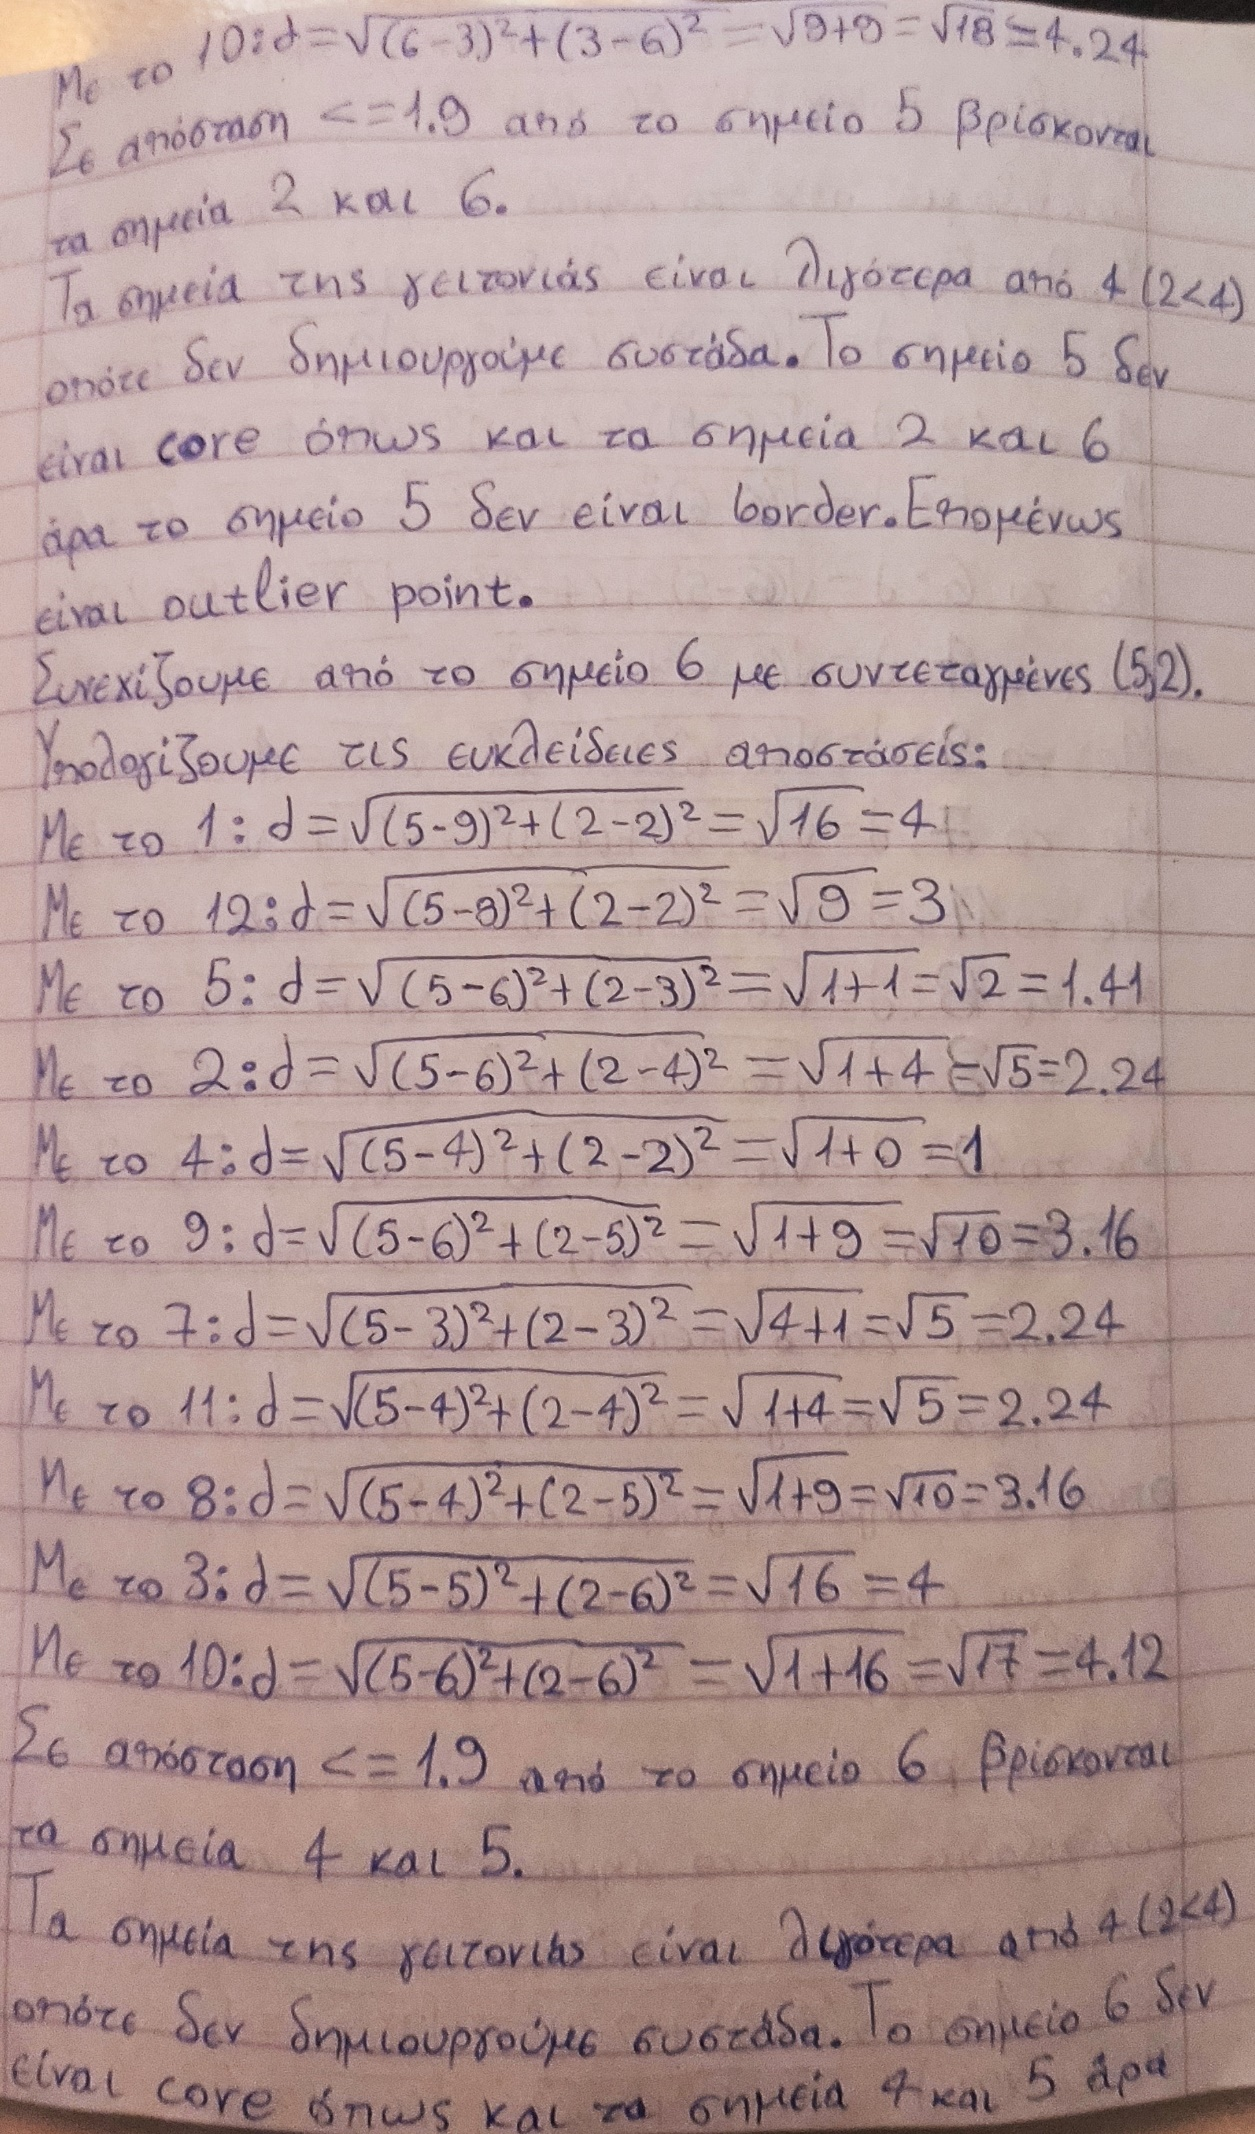 Με το 10: d=√(6-3)²+(3-6)² = √9+9 = √18 ≃ 4.24
Σε απόσταση <=1.9 από το σημείο 5 βρίσκονται
τα σημεία 2 και 6.
Τα σημεία της γειτονιάς είναι λιγότερα από 4 (2<4)
οπότε δεν δημιουργούμε συστάδα. Το σημείο 5 δεν
είναι core όπως και τα σημεία 2 και 6
άρα το σημείο 5 δεν είναι border. Επομένως
είναι outlier point.
Συνεχίζουμε από το σημείο 6 με συντεταγμένες (5,2).
Υπολογίζουμε τις ευκλείδειες αποστάσείς:
Με το 1: d=√(5-9)²+(2-2)² = √16 = 4
Με το 12: d=√(5-8)²+(2-2)² = √9 = 3
Με το 5: d=√(5-6)²+(2-3)² = √1+1 = √2 = 1.41
Με το 2: d=√(5-6)²+(2-4)² = √1+4 = √5 = 2.24
Με το 4: d=√(5-4)²+(2-2)² = √1+0 = 1
Με το 9: d=√(5-6)²+(2-5)² = √1+9 = √10 = 3.16
Με το 7: d=√(5-3)²+(2-3)² = √4+1 = √5 = 2.24
Με το 11: d=√(5-4)²+(2-4)² = √1+4 = √5 = 2.24
Με το 8: d=√(5-4)²+(2-5)² = √1+9 = √10 = 3.16
Με το 3: d=√(5-5)²+(2-6)² = √16 = 4
Με το 10: d=√(5-6)²+(2-6)² = √1+16 = √17 = 4.12
Σε απόσταση <=1.9 από το σημείο 6 βρίσκονται
τα σημεία 4 και 5.
Τα σημεία της γειτονιάς είναι λιγότερα από 4 (2<4)
οπότε δεν δημιουργούμε συστάδα. Το σημείο 6 δεν
είναι core όπως και τα σημεία 4 και 5 άρα